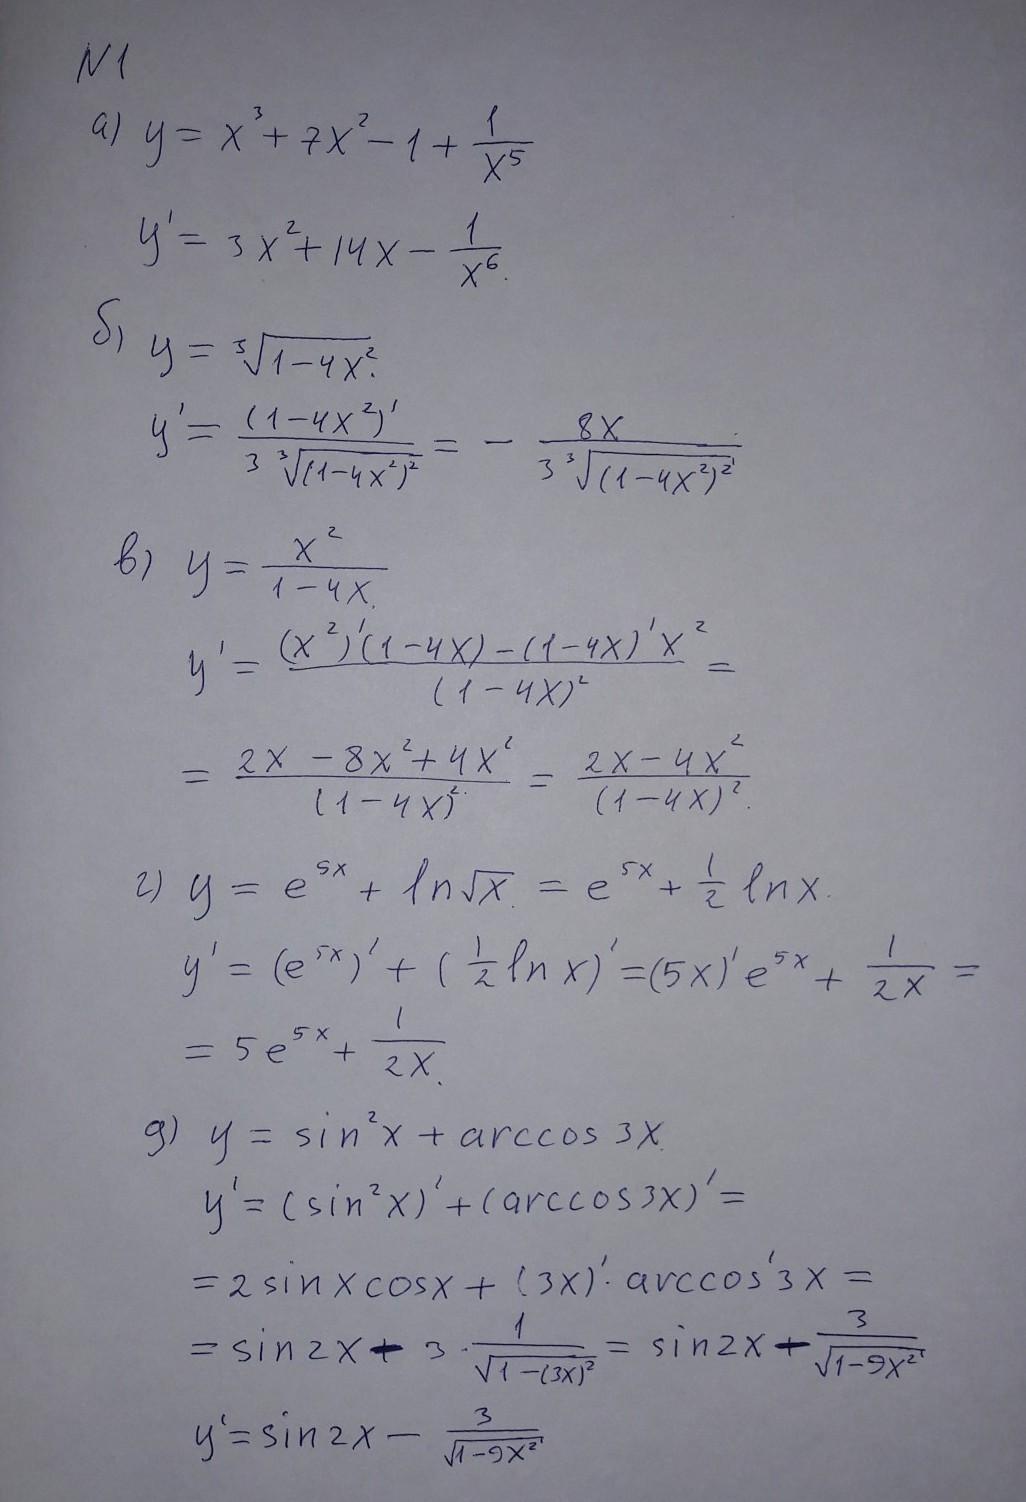 N1
а) y = x³ + 7x² − 1 + 1/x⁵
y' = 3x² + 14x − 1/x⁶.
б) y = ³√(1−4x²).
y' = (1−4x²)' / (3 ³√((1−4x²)²)) = − 8x / (3 ³√((1−4x²)²))
в) y = x² / (1−4x).
y' = ((x²)'(1−4x) − (1−4x)'x²) / (1−4x)² =
= (2x − 8x² + 4x²) / (1−4x)² = (2x − 4x²) / (1−4x)².
г) y = e^(5x) + ln√x = e^(5x) + 1/2 ln x.
y' = (e^(5x))' + (1/2 ln x)' = (5x)' e^(5x) + 1/(2x) =
= 5e^(5x) + 1/(2x).
д) y = sin²x + arccos 3x.
y' = (sin²x)' + (arccos 3x)' =
= 2 sin x cos x + (3x)' · arccos' 3x =
= sin 2x + 3 · 1/√(1−(3x)²) = sin 2x + 3/√(1−9x²)
y' = sin 2x − 3/√(1−9x²)